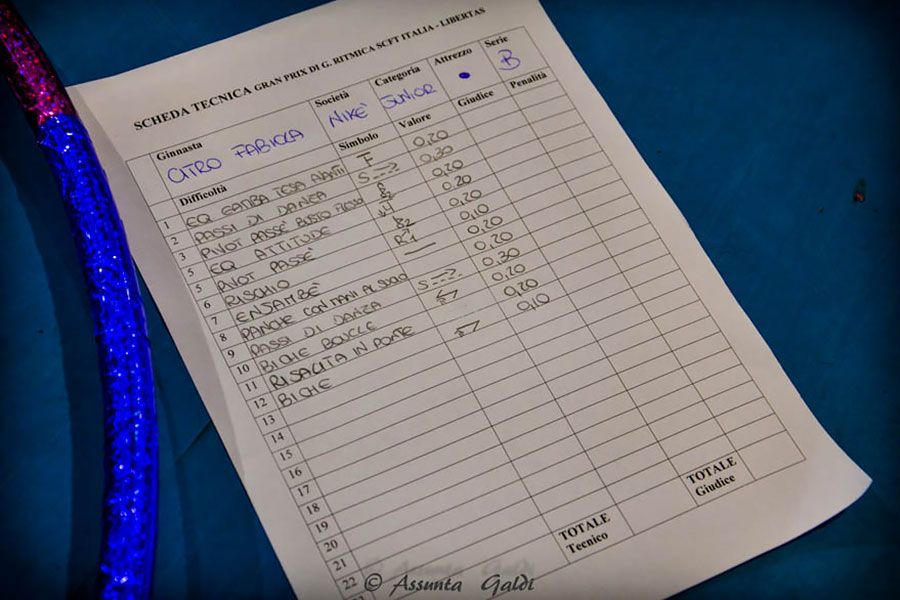 SCHEDA TECNICA GRAN PRIX DI G. RITMICA SCFT ITALIA - LIBERTAS
Ginnasta Società Categoria Attrezzo Serie
CITRO FABIOLA NIKE' JUNIOR • B
Difficoltà Simbolo Valore Giudice Penalità
1 EQ GAMBA TESA AVANTI 0,20
2 PASSI DI DANZA S 0,30
3 PIVOT PASSÈ BUSTO FLESSO 0,20
5 EQ ATTITUDE 0,20
5 PIVOT PASSÈ 0,20
6 RISCHIO R1 0,10
7 ENJAMBÈ 0,20
8 PANCHE CON MANI AL SUOLO 0,20
9 PASSI DI DANZA S 0,30
10 BICHE BOUCLE 0,20
11 RISALITA IN PONTE 0,20
12 BICHE 0,10
13
14
15
16
17
18
19
20
21
22
23
TOTALE Tecnico
TOTALE Giudice
© Assunta Galdi